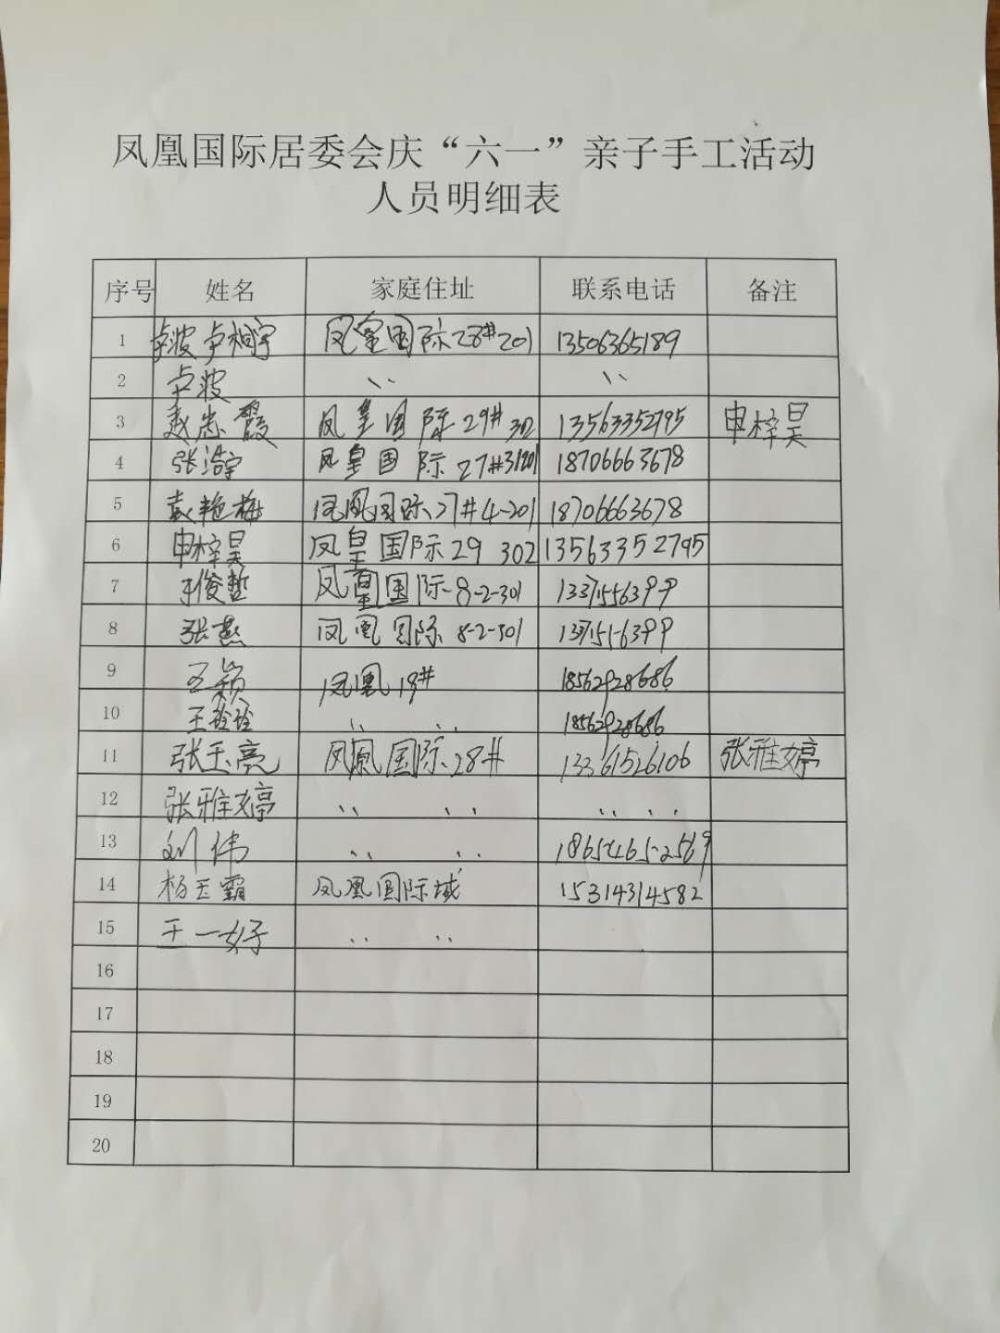 凤凰国际居委会庆“六一”亲子手工活动
人员明细表
序号 姓名 家庭住址 联系电话 备注
1 卢波 卢相宇 凤凰国际28#201 13506365189
2 卢波 〃 〃
3 赵忠霞 凤皇国际29#302 13563352795 申梓昊
4 张浩宇 凤皇国际27# 18706663678
5 袁艳梅 凤凰国际27#4-201 18706663678
6 申梓昊 凤皇国际29 302 13563352795
7 于俊哲 凤凰国际8-2-301 13371556399
8 张燕 凤凰国际8-2-301
9 王颖 凤凰19# 18562928686
10 王玲玲 〃 〃 18562928686
11 张玉亮 凤凰国际28# 13361526106 张雅婷
12 张雅婷 〃 〃 〃 〃
13 刘伟 〃 〃
14 杨玉霸 凤凰国际城 15314314582
15 王一好 〃 〃
16
17
18
19
20